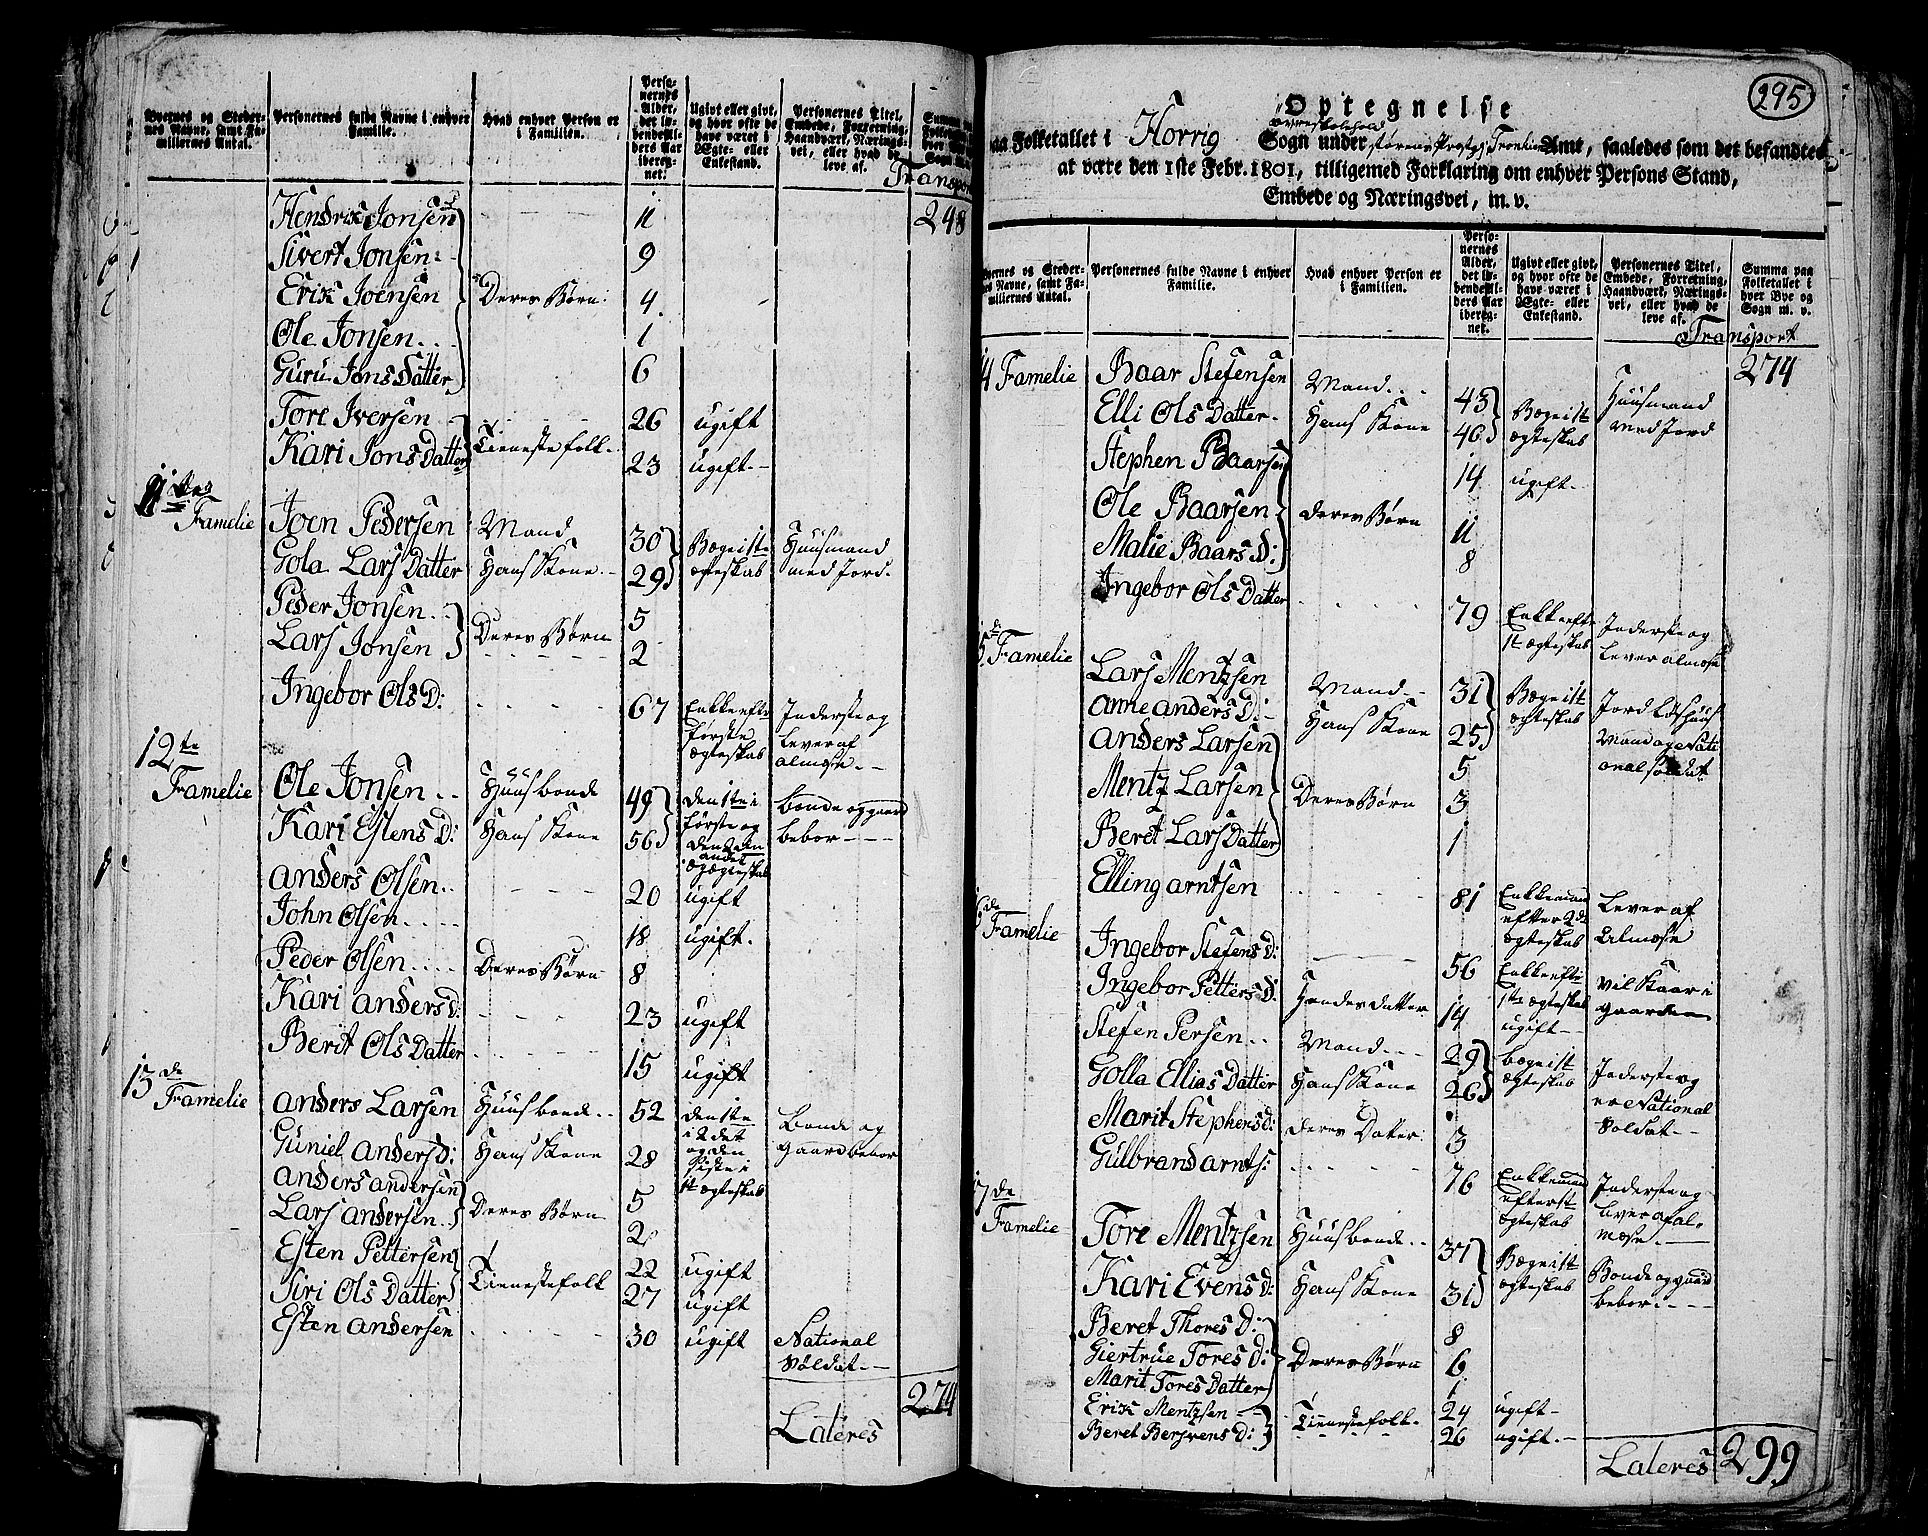 Byernes og Steder-
nes Navne, samt Fa-
miliernes Antal.
Personernes fulde Navne i enhver
Familie.
Hvad enhver Person er
i Familien.
Perso-
nernes
Alder,
det lø-
bendeAl-
ders Aar
ibereg-
net.
Ugivt eller givt,
og hvor ofte de
have været i
Ægte- eller
Enkestand.
Personernes Titel,
Embede, Forretning,
Haandværk, Nærings-
vei, eller hvad de
leve af.
Transport
248
Hendrik Jonsen 11
Sivert Jonsen 9
Erik Joensen Deres Børn 4
Ole Jonsen 1
Guru Jons Datter 6
Tore Iversen 26 ugift
Kari Jons Datter Tienestefolk 23 ugift
11te
Familie
Joen Pedersen Mand 30 Begge i 1te Huusmand
Gola Lars Datter Hans Kone 29 ægteskab med Jord.
Peder Jonsen 5
Lars Jonsen Deres Børn 2
Ingebor Ols D: 67 Enke efter Inderste og
første lever af
ægteskab almose
12te
Famelie
Ole Jonsen Huusbonde 49 den 1te i Bonde og gaard
Kari Estens D: Hans Kone 56 første og beboer
den 2den
andet
ægteskab
Anders Olsen 20 ugift
John Olsen 18 ugift.
Peder Olsen Deres Børn 8
Kari Anders d: 23 ugift
Berit Ols Datter 15 ugift
13de
Famelie
Anders Larsen Huusbonde 52 den 1te Bonde og
Guniel Anders d: Hans Kone 28 i 2det gaardbeboer
og den
sidste i
1t ægteskab
Anders Andersen 5
Lars Andersen Deres Børn 2
Esten Pettersen 22 ugift
Siri Ols Datter Tienestefolk 27 ugift
Esten Andersen 30 ugift National
Soldat
Lateres 274
295
Optegnelse
paa Folketallet i Horrig Sogn under Størens Prstgj Trondhiem Amt, saaledes som det befandtes
at være den 1ste Febr. 1801, tilligemed Forklaring om enhver Persons Stand,
Embede og Næringsvei, m. v.
Byernes og Steder-
nes Navne, samt Fa-
miliernes Antal.
Personernes fulde Navne i enhver
Familie.
Hvad enhver Person er
i Familien.
Perso-
nernes
Alder,
det lø-
bendeAl-
ders Aar
ibereg-
net.
Ugivt eller givt,
og hvor ofte de
have været i
Ægte- eller
Enkestand.
Personernes Titel,
Embede, Forretning,
Haandværk, Nærings-
vei, eller hvad de
leve af.
Summa paa
Folketallet i
hver Bye og
Sogn m. v.
Transport
274
14 Famelie
Baar Stefensen Mand 43 Begge i 1t Huusmand
Elli Ols Datter Hans Kone 46 ægteskab med Jord
Stephen Baarsen 14 ugift
Ole Baarsen deres Børn 11
Malie Baars D: 8
Ingebor Ols Datter 79 Enke efter Inderste og
1t ægteskab lever almose
5de Famelie
Lars Mentzsen Mand 31 Begge i 1t Jordløs huus
Anne Anders D: Hans Kone 25 ægteskab Mand og Nati
onal soldat
Anders Larsen 5
Mentz Larsen Deres Børn 3
Beret Lars Datter 1
Elling Arntsen 81 Enkemand lever af
efter 2de Almose
ægteskab
6de Famelie
Ingebor Stefens d: 56 Enke efter
1te ægteskab
Ingebor Petters d: Hendes datter 14 ugift
Stefen Persen Mand 29 begge i 1t Inderste og
Golla Ellias Datter Hans Kone 26 ægteskab er National
Soldat
Marit Stephens d: deres Dater 3
Gulbrand Arnts: 76 Enkemand Inderste og
efter 1t lever af al-
ægteskab mose
17de
Famelie
Tore Mentzsen Huusbonde 37 Begge i 1t Bonde og gaard
Kari Evens d: Hans Kone 31 ægteskab beboer
Beret Thores D: 8
Giertrue Tores d: Deres Børn 6
Marit Tores Datter 1
Erik Mentzsen 24 ugift
Beret Bersvens d: Tienestefolk 26 ugift
Lateres 299